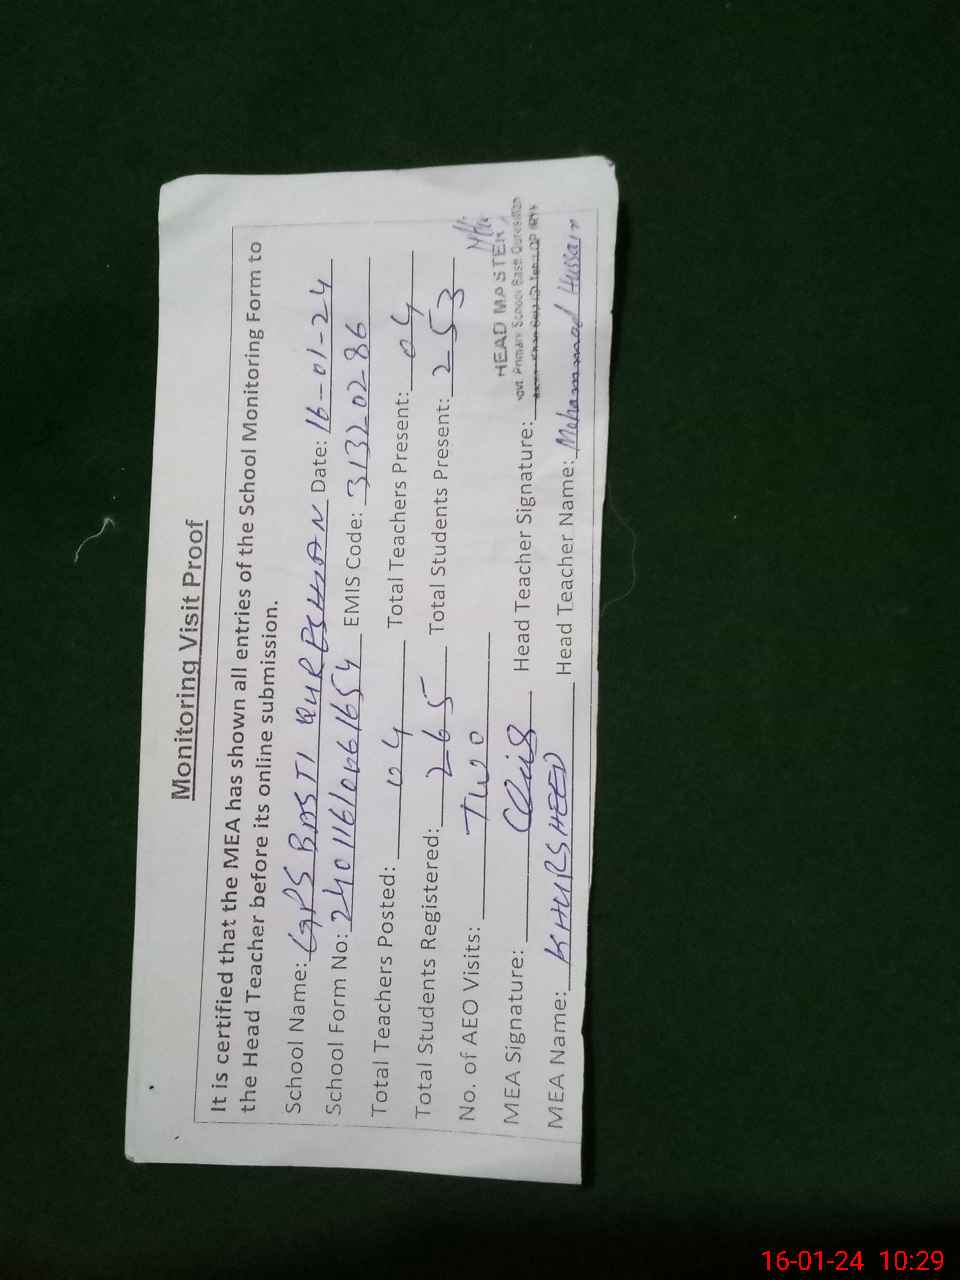 Monitoring Visit Proof
It is certified that the MEA has shown all entries of the School Monitoring Form to
the Head Teacher before its online submission.
School Name: GPS BASTI QURESHIAN Date: 16-01-24
School Form No: 24011610661654 EMIS Code: 31320286
Total Teachers Posted: 04 Total Teachers Present: 04
Total Students Registered: 265 Total Students Present: 253
No. of AEO Visits: TWO
HEAD MASTER
Govt. Primary School Basti Qureshian
MEA Signature: Head Teacher Signature:
MEA Name: KHURSHEED Head Teacher Name: Mohammad Hussain
16-01-24 10:29